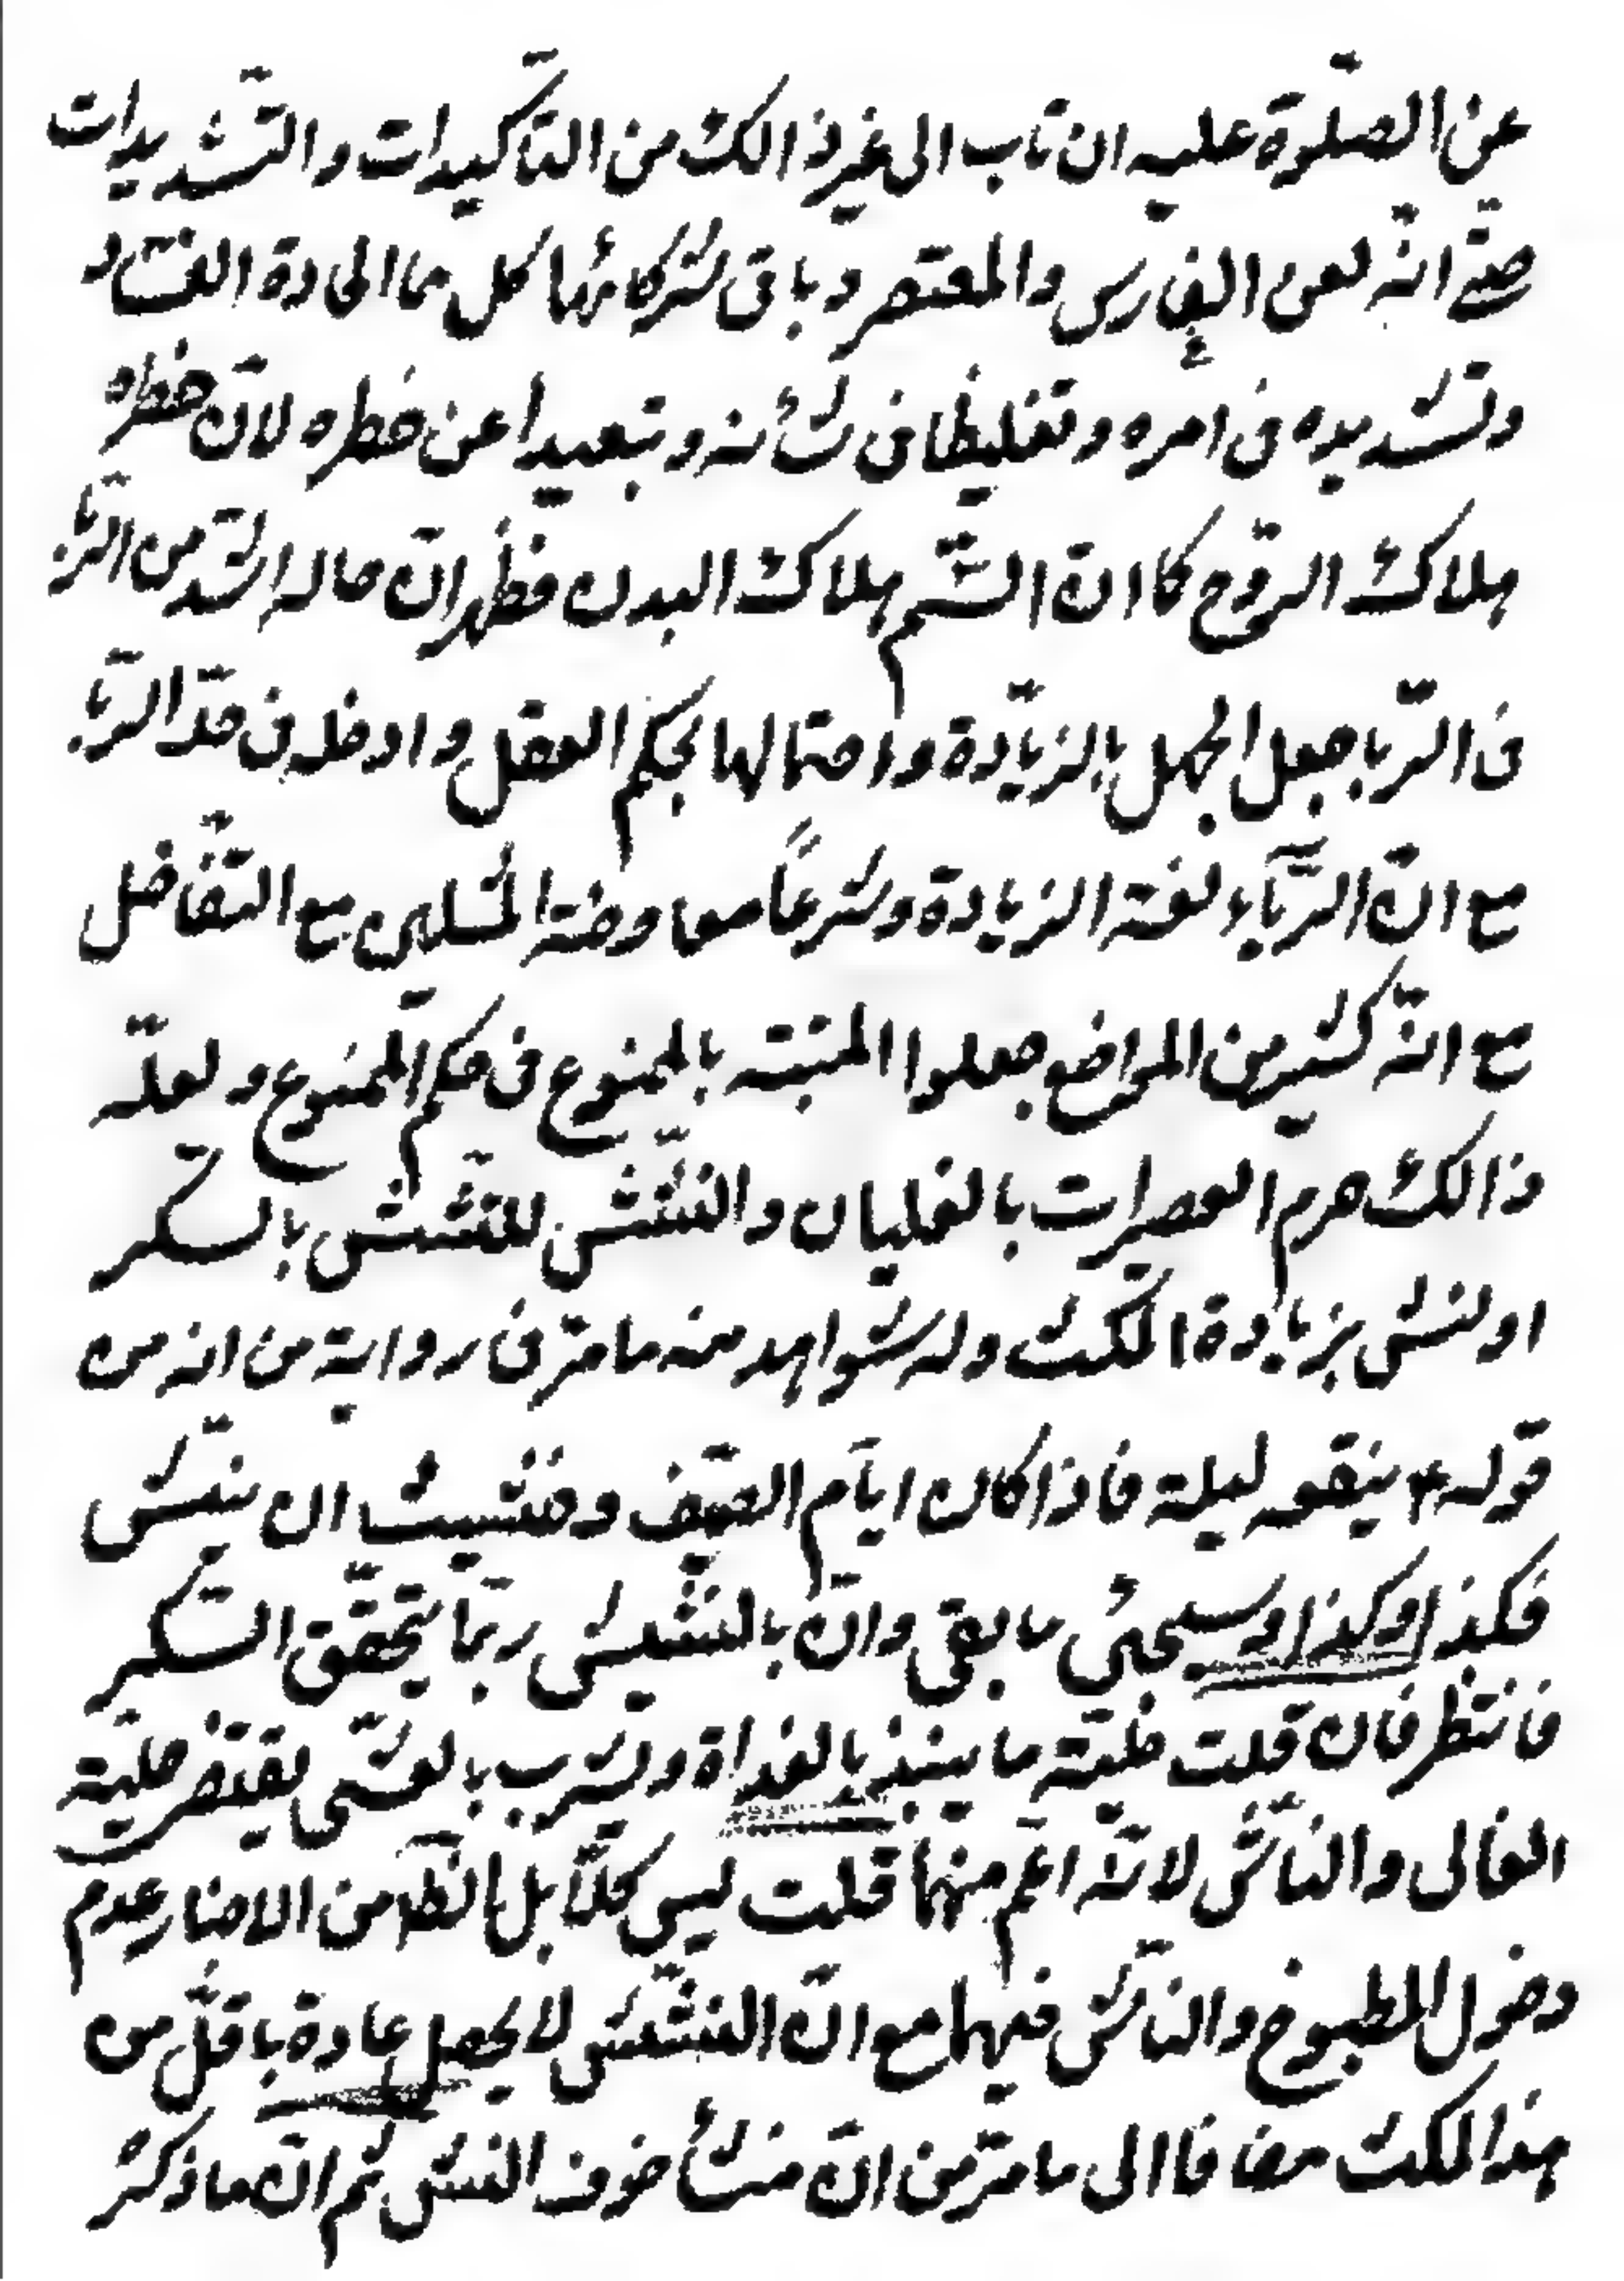 عن الصّلوة عليه ان تاب الى غير ذالك من التّأكيدات والتّشديدات
حتّى انّه لعن الغارس والمعتصر وباقى شركائهما كل ما الحادة الفساد
وتشديده فى امره وتغليظا فى شأنه وتبعيدا عن خطره لانّ خطره
هلاك الرّوح كما انّ السّم هلاك البدن فظهر انّ حاله اشدّ من الرّبا
فى الرّبا جعل الجهل بالزّيادة واحتمالها بحكم العقل وادخل فى حدّ الرّبا
مع انّ الرّبآء لغة الزيادة وشرعاً معاوضة المثلين مع التّفاضل
مع انّه كثير من المواضع جعلوا المشتبه بالممنوع فى حكم الممنوع ولعلّه
ذالك حرم العصيرات بالغليان والنّشيش للتشبّث بالسّكر
او لنشى بزيادة المكث وله شواهد منه ما مرّ فى رواية من انه من
قوله ع ينقعه ليلة فاذا كان ايّام الصّيف وخشيت ان ينشّ
فكذا وكذا وسيجئ ما بقى وانّ بالنّشيش ربّما يتحقّق السّكر
فانتظر فان قلت حلّيّة ما ينبذ بالغداة ويشرب بالعشّى يقتضى حليّة
الغالى والنّاشّ لانّه اعمّ منهما قلت ليس كلّا بل الظّ من الاخبار عدم
دخول المطبوخ والناشّ فيهما مع انّ النّشيش لا يحصل عادة باقلّ من
هذا المكث مضافا الى ما مرّ من انّ منشأ خوف النش ثم انّ ما ذكر